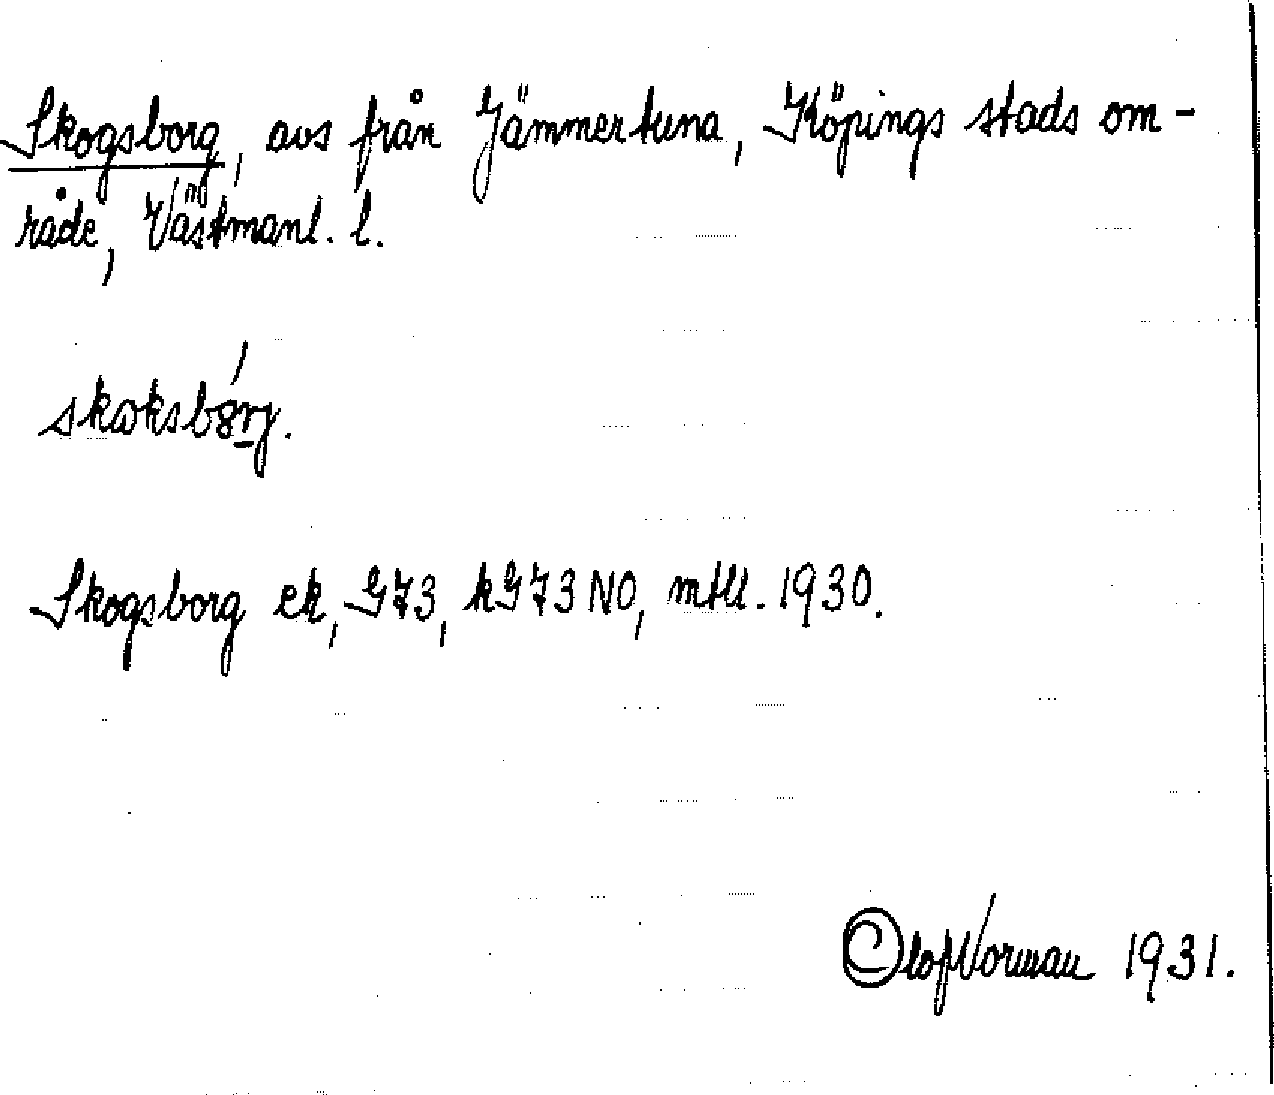 Skogsborg, avs från Jämmertuna, Köpings stads om-
råde, Västmanl. l.
skoksbórj.
Skogsborg ek, G73, kG73NO, mtll. 1930.
Olof Norman 1931.